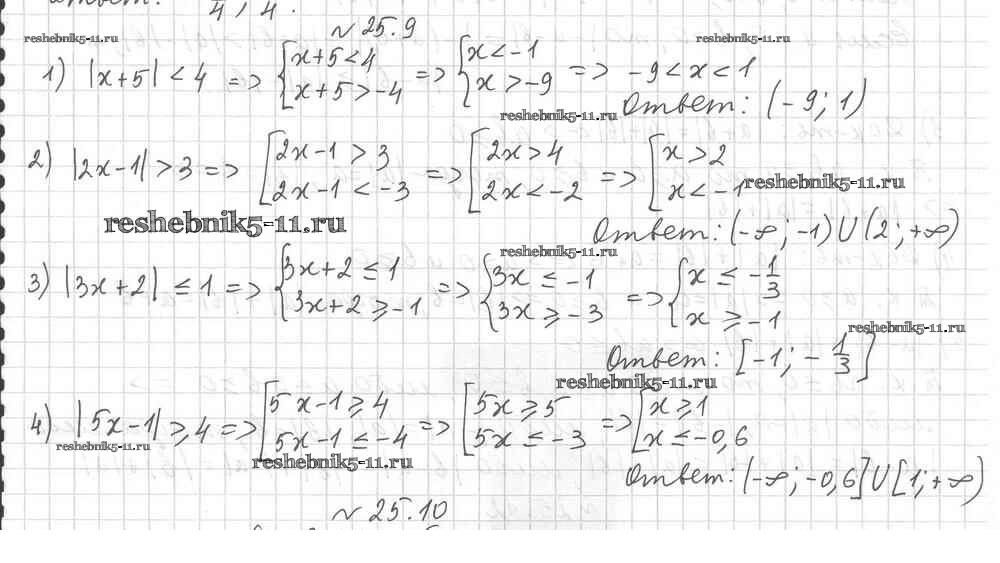 Ответ: 1/4, 4.
№25.9
reshebnik5-11.ru reshebnik5-11.ru
1) |x+5| < 4 => { x+5<4 ; x+5>-4 => { x<-1 ; x>-9 => -9<x<1
Ответ: (-9; 1)
reshebnik5-11.ru
2) |2x-1| > 3 => [ 2x-1>3 ; 2x-1<-3 => [ 2x>4 ; 2x<-2 => [ x>2 ; x<-1
reshebnik5-11.ru
reshebnik5-11.ru
Ответ: (-∞; -1) U (2; +∞)
reshebnik5-11.ru
3) |3x+2| ≤ 1 => { 3x+2≤1 ; 3x+2≥-1 => { 3x≤-1 ; 3x≥-3 => { x≤-1/3 ; x≥-1
reshebnik5-11.ru
Ответ: [-1; -1/3]
reshebnik5-11.ru
4) |5x-1| ≥ 4 => [ 5x-1≥4 ; 5x-1≤-4 => [ 5x≥5 ; 5x≤-3 => [ x≥1 ; x≤-0,6
reshebnik5-11.ru
reshebnik5-11.ru
Ответ: (-∞; -0,6] U [1; +∞)
№25.10